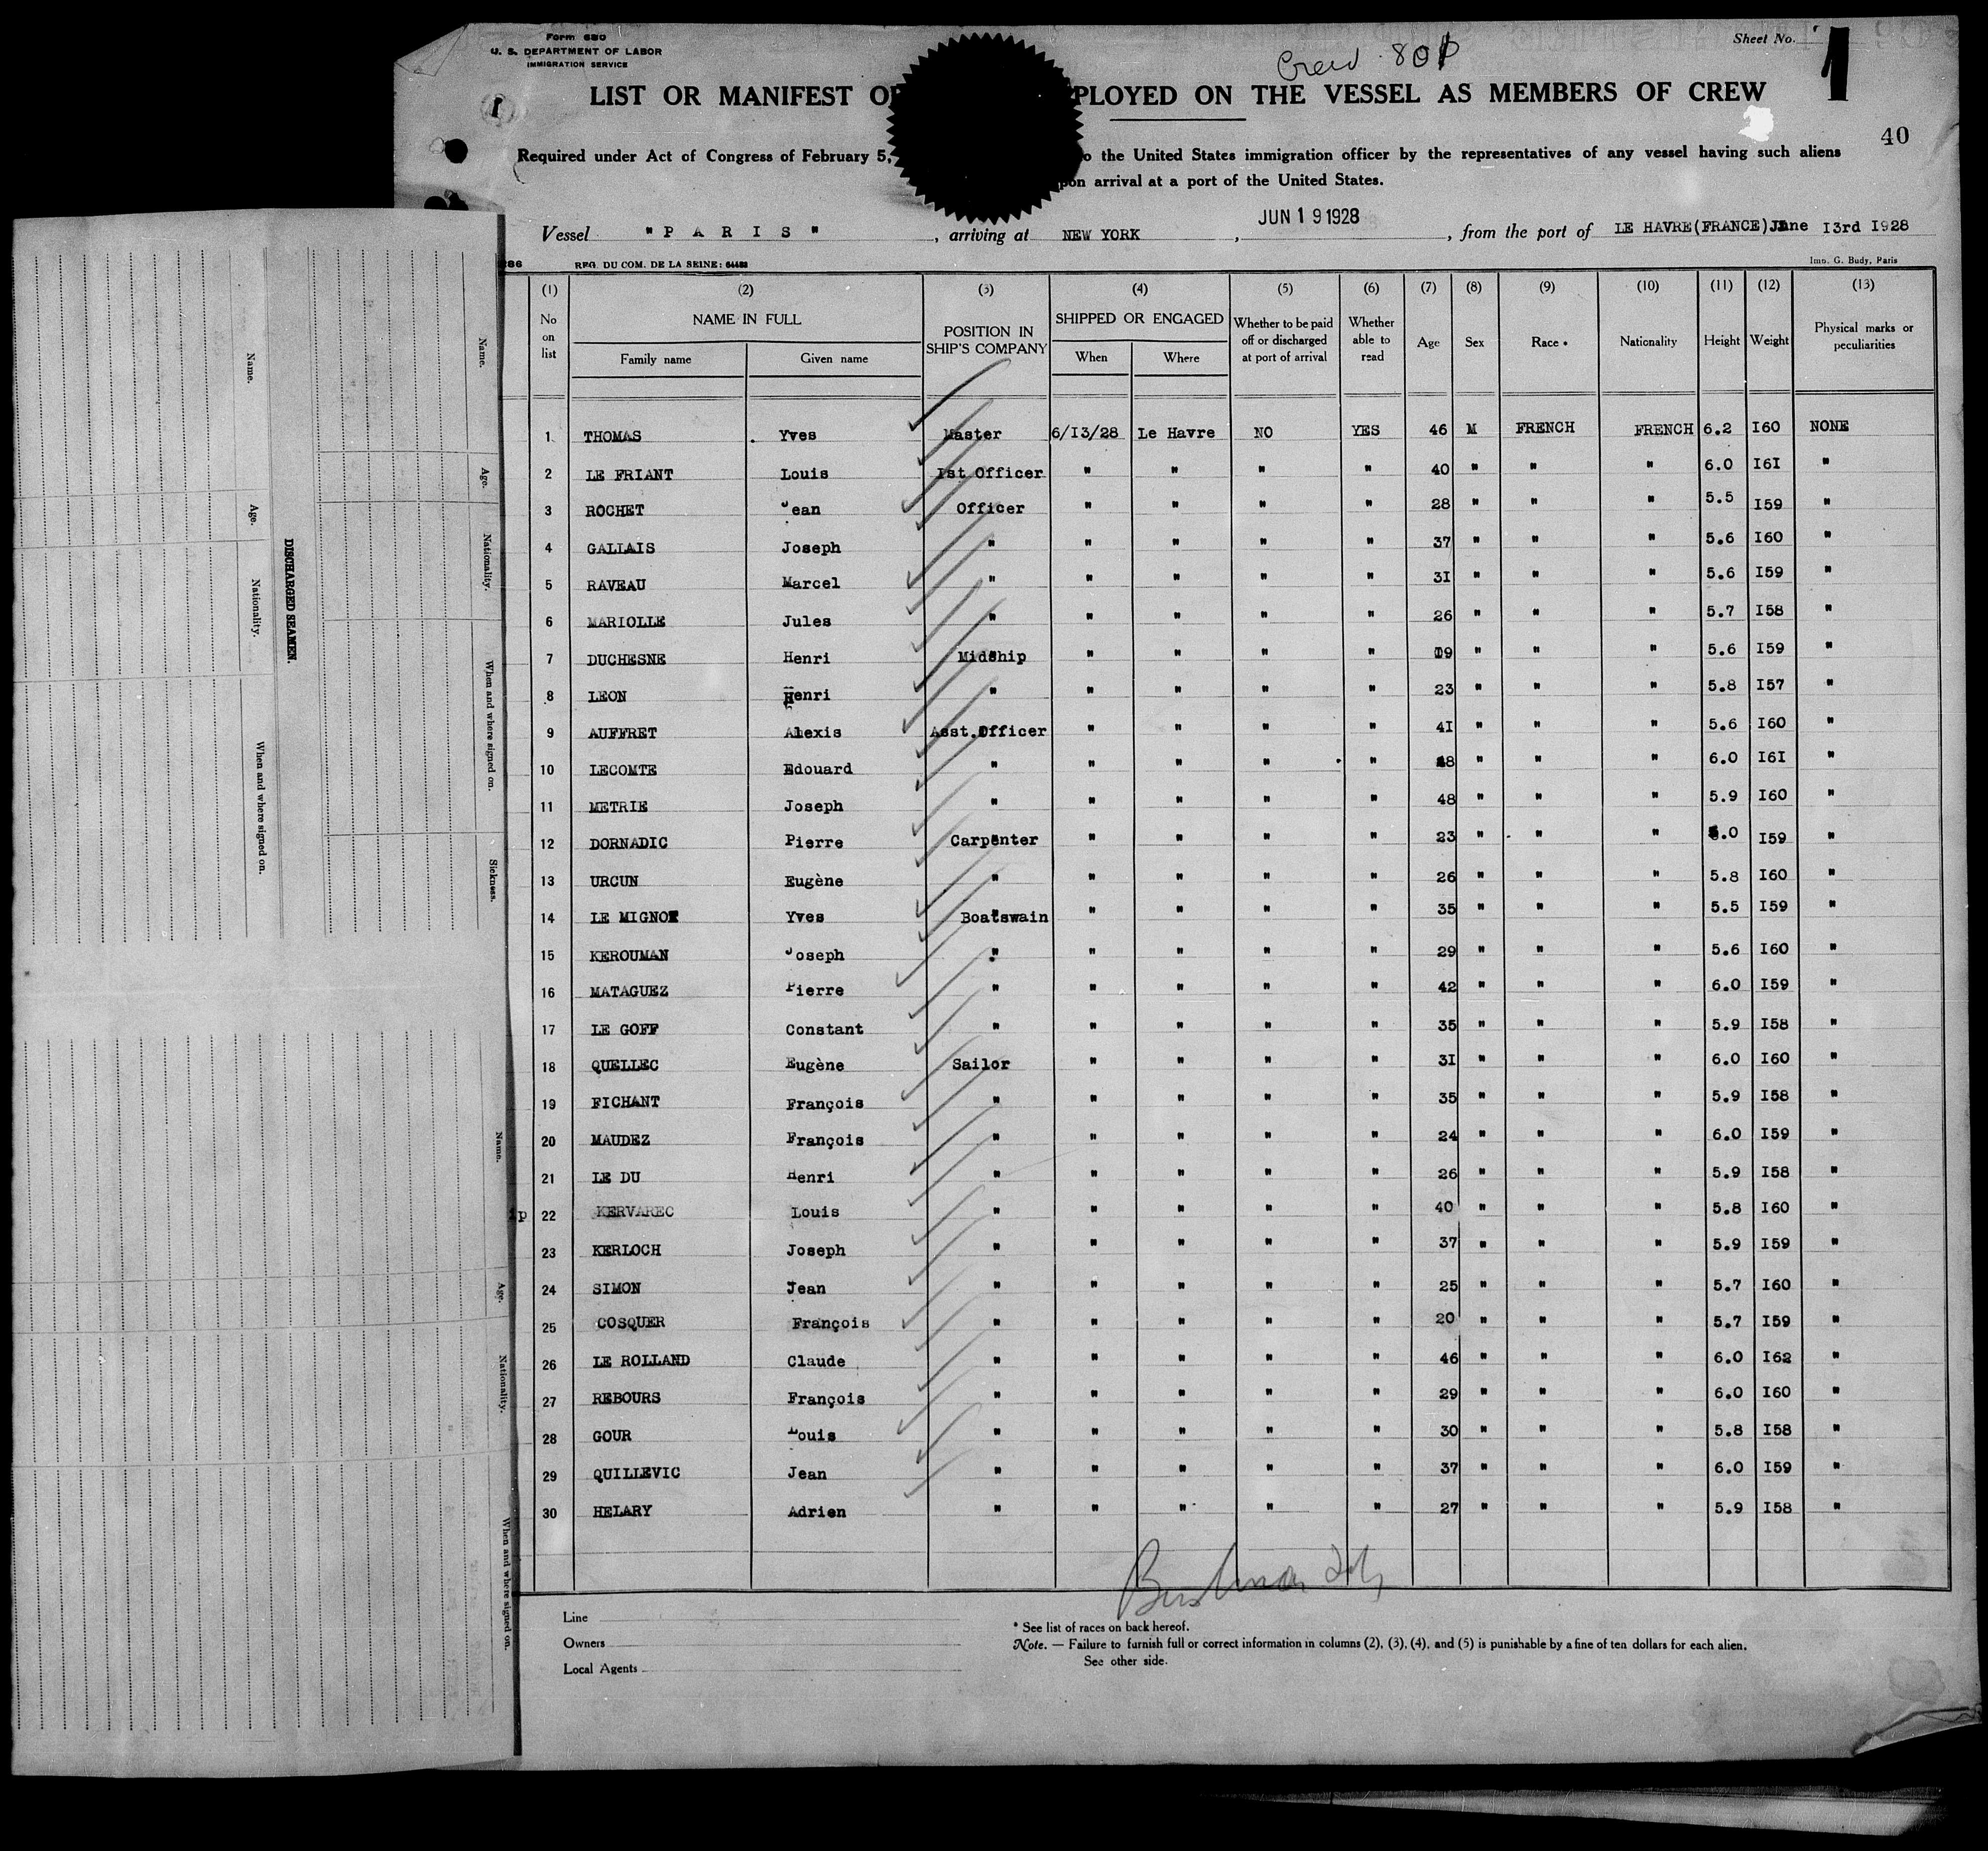 Form 680
U. S. DEPARTMENT OF LABOR
IMMIGRATION SERVICE
Crew 801
Sheet No. 1
LIST OR MANIFEST O PLOYED ON THE VESSEL AS MEMBERS OF CREW
40
Required under Act of Congress of February 5, o the United States immigration officer by the representatives of any vessel having such aliens
pon arrival at a port of the United States.
Vessel "PARIS", arriving at NEW YORK, JUN 19 1928, from the port of LE HAVRE(FRANCE)June I3rd I928
286 REG. DU COM. DE LA SEINE: 64488 Imp. G. Budy, Paris
(1) (2) (3) (4) (5) (6) (7) (8) (9) (10) (11) (12) (13)
No on list NAME IN FULL Family name Given name POSITION IN SHIP'S COMPANY SHIPPED OR ENGAGED When Where Whether to be paid off or discharged at port of arrival Whether able to read Age Sex Race * Nationality Height Weight Physical marks or peculiarities
1 THOMAS Yves Master 6/I3/28 Le Havre NO YES 46 M FRENCH FRENCH 6.2 I60 NONE
2 LE FRIANT Louis Ist Officer " " " " 40 " " " 6.0 I6I "
3 ROCHET Jean Officer " " " " 28 " " " 5.5 I59 "
4 GALLAIS Joseph " " " " " 37 " " " 5.6 I60 "
5 RAVEAU Marcel " " " " " 3I " " " 5.6 I59 "
6 MARIOLLE Jules " " " " " 26 " " " 5.7 I58 "
7 DUCHESNE Henri Midship " " " " 19 " " " 5.6 I59 "
8 LEON Henri " " " " " 23 " " " 5.8 I57 "
9 AUFFRET Alexis Asst.Officer " " " " 4I " " " 5.6 I60 "
10 LECOMTE Edouard " " " " " " " " 6.0 I6I "
11 METRIE Joseph " " " " " 48 " " " 5.9 I60 "
12 DORNADIC Pierre Carpenter " " " " 23 " " " 6.0 I59 "
13 URCUN Eugène " " " " " 26 " " " 5.8 I60 "
14 LE MIGNOT Yves Boatswain " " " " 35 " " " 5.5 I59 "
15 KEROUMAN Joseph " " " " " 29 " " " 5.6 I60 "
16 MATAGUEZ Pierre " " " " " 42 " " " 6.0 I59 "
17 LE GOFF Constant " " " " " 35 " " " 5.9 I58 "
18 QUELLEC Eugène Sailor " " " " 3I " " " 6.0 I60 "
19 FICHANT François " " " " " 35 " " " 5.9 I58 "
20 MAUDEZ François " " " " " 24 " " " 6.0 I59 "
21 LE DU Henri " " " " " 26 " " " 5.9 I58 "
22 KERVAREC Louis " " " " " 40 " " " 5.8 I60 "
23 KERLOCH Joseph " " " " " 37 " " " 5.9 I59 "
24 SIMON Jean " " " " " 25 " " " 5.7 I60 "
25 COSQUER François " " " " " 20 " " " 5.7 I59 "
26 LE ROLLAND Claude " " " " " 46 " " " 6.0 I62 "
27 REBOURS François " " " " " 29 " " " 6.0 I60 "
28 GOUR Louis " " " " " 30 " " " 5.8 I58 "
29 QUILLEVIC Jean " " " " " 37 " " " 6.0 I59 "
30 HELARY Adrien " " " " " 27 " " " 5.9 I58 "
Line
Owners
Local Agents
* See list of races on back hereof.
Note. — Failure to furnish full or correct information in columns (2), (3), (4), and (5) is punishable by a fine of ten dollars for each alien.
See other side.
DISCHARGED SEAMEN.
Name. Age. Nationality. When and where signed on.
Name. Age. Nationality. When and where signed on. Sickness.
Name. Age. Nationality. When and where signed on.